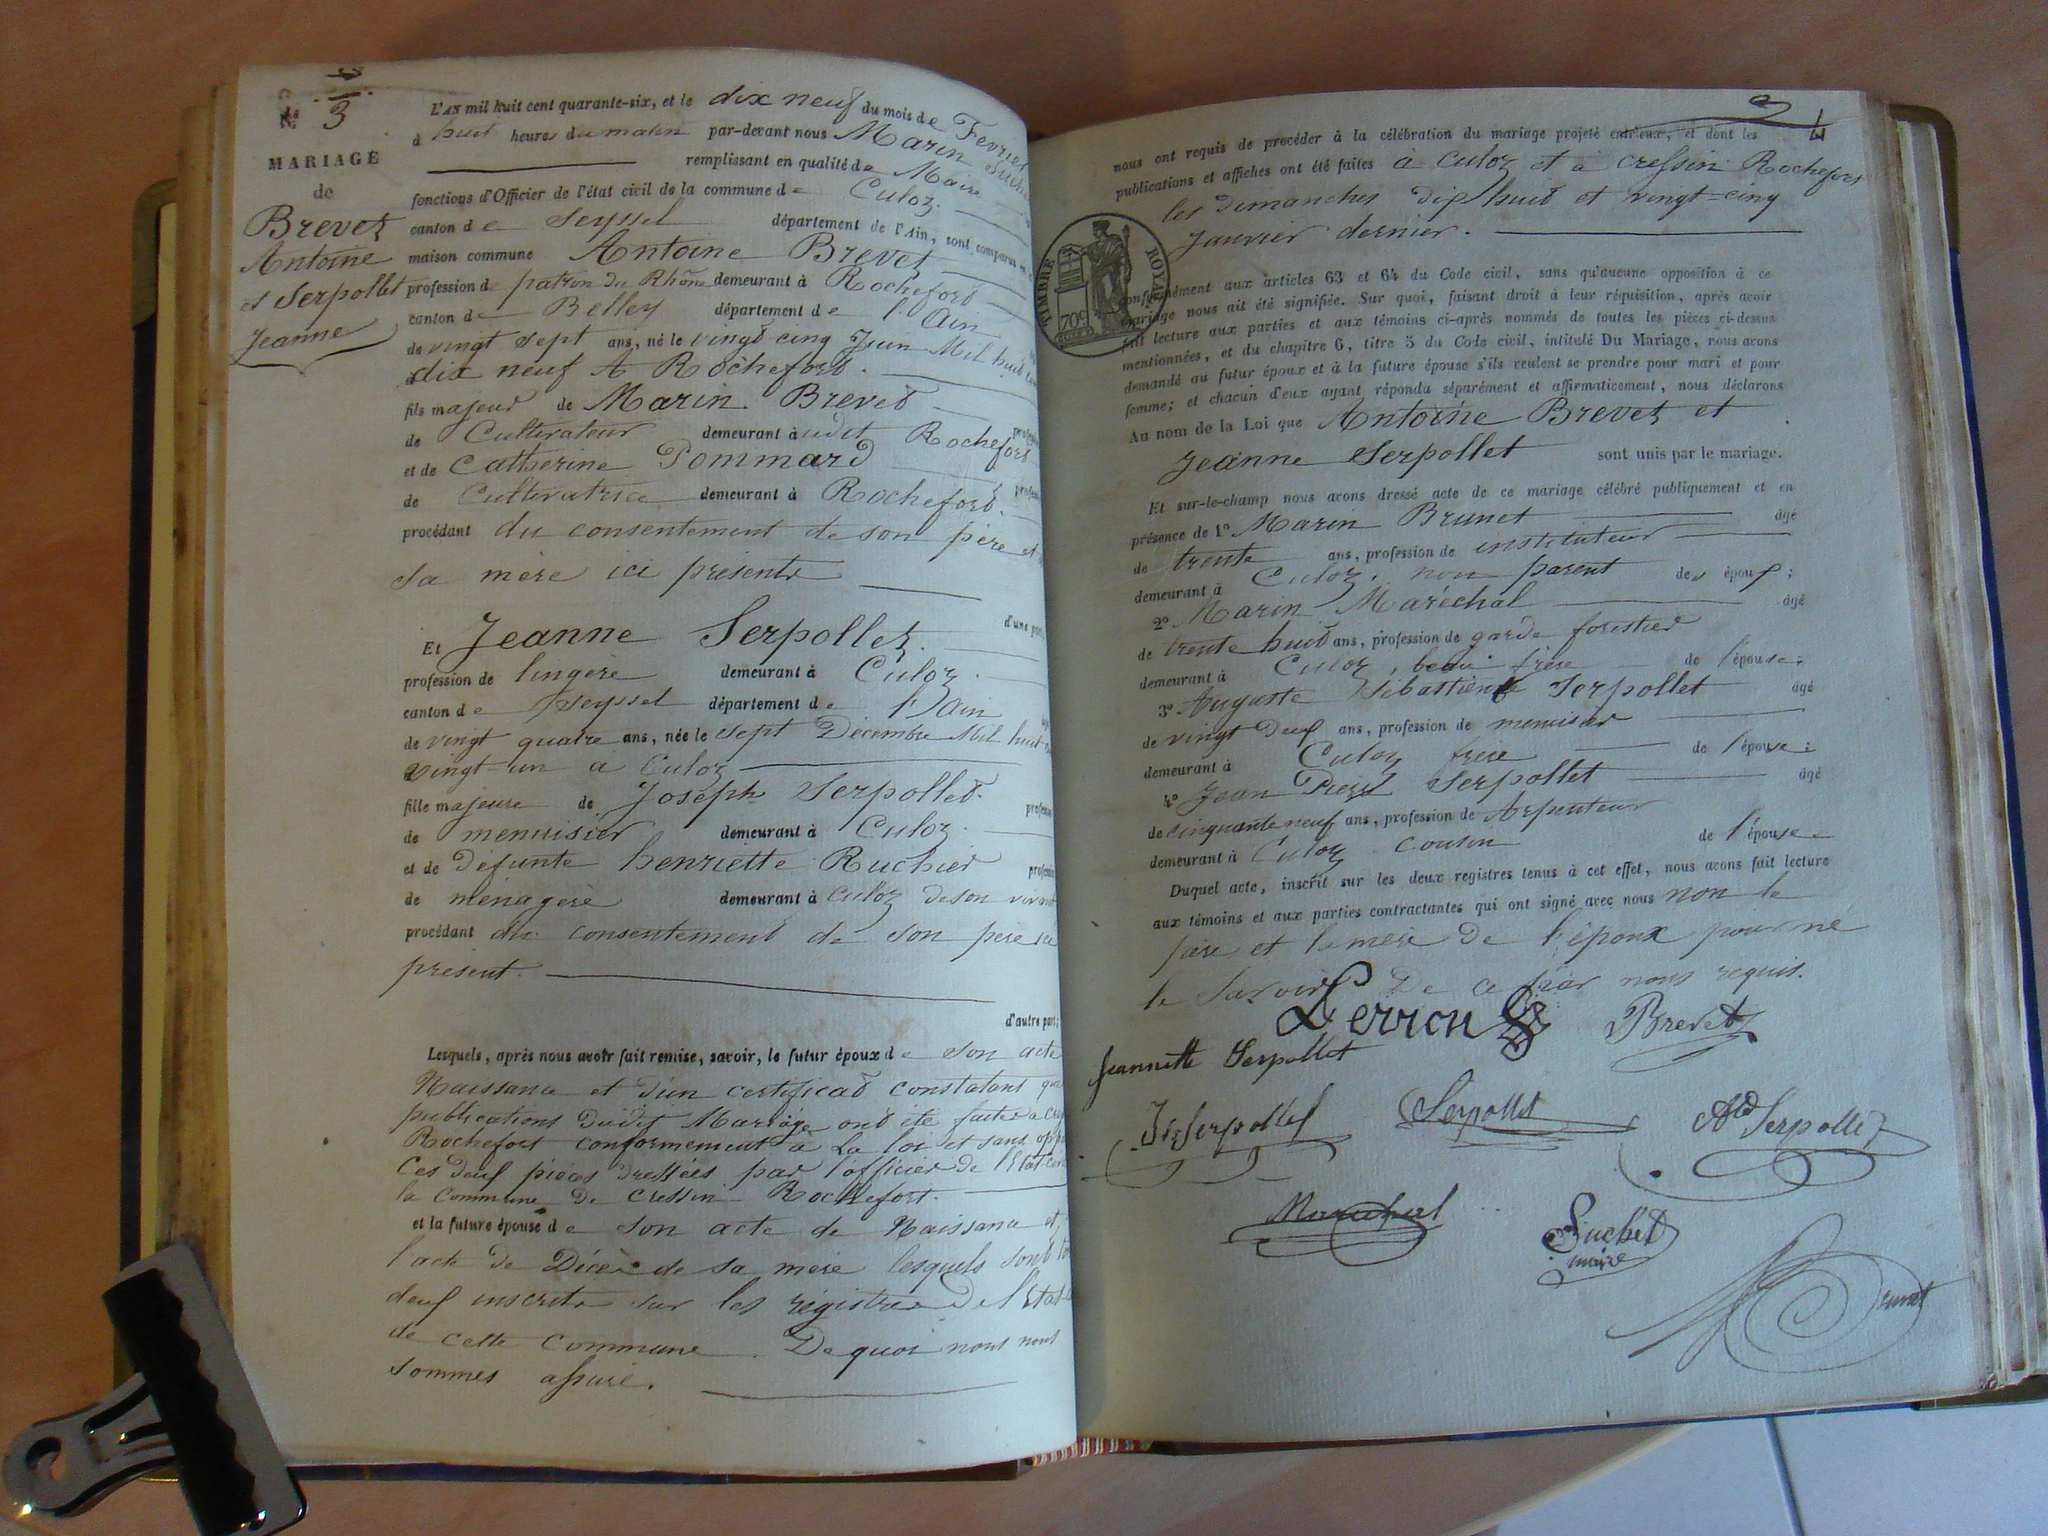 N.° 3
MARIAGE
de
Brevet
Antoine
et Serpollet
Jeanne
L'AN mil huit cent quarante-six, et le dix neuf du mois de Fevrier
à huit heures du matin par-devant nous Marin Suchet
remplissant en qualité de Maire
fonctions d'Officier de l'état civil de la commune de Culoz.
canton de Seyssel département de l'Ain, sont comparus en
maison commune Antoine Brevet
profession de patron du Rhône demeurant à Rochefort
canton de Belley département de l'Ain
de vingt sept ans, né le vingt-cinq Juin Mil huit cent
dix neuf A Rochefort.
fils majeur de Marin Brevet
de Cultivateur demeurant à udit Rochefort
et de Catherine Pommard
de Cultivatrice demeurant à Rochefort.
procédant du consentement de son père et
sa mère ici présents
d'une part,
Et Jeanne Serpollet
profession de lingère demeurant à Culoz.
canton de Seyssel département de l'Ain
de vingt quatre ans, née le sept Décembre Mil huit
vingt-un a Culoz
fille majeure de Joseph Serpollet.
de menuisier demeurant à Culoz.
et de défunte henriette Ruchier
de ménagère demeurant à Culoz de son vivant
procédant du consentement de son père ici
présent.
d'autre part;
Lesquels, après nous avoir fait remise, savoir, le futur époux de son acte
Naissance et d'un certificat constatant que
publications dudit Mariage ont été faites a
Rochefort conformément à La loi et sans
Ces deux pièces dressées par l'officier de l'Etat
la Commune de Cressin Rochefort.
et la future épouse de son acte de Naissance et
l'acte de Décès de sa mère lesquels sont
deux inscrits sur les régistres de l'Etat
de cette commune. De quoi nous nous
sommes assuré.
nous ont requis de procéder à la célébration du mariage projeté entr'eux, et dont les
publications et affiches ont été faites à Culoz et à Cressin Rochefort
les dimanches dix huit et vingt-cinq
Janvier dernier.
TIMBRE ROYAL
70c
conformément aux articles 63 et 64 du Code civil, sans qu'aucune opposition à ce
mariage nous ait été signifiée. Sur quoi, faisant droit à leur réquisition, après avoir
fait lecture aux parties et aux témoins ci-après nommés de toutes les pièces ci-dessus
mentionnées, et du chapitre 6, titre 5 du Code civil, intitulé Du Mariage, nous avons
demandé au futur époux et à la future épouse s'ils veulent se prendre pour mari et pour
femme; et chacun d'eux ayant répondu séparément et affirmativement, nous déclarons
Au nom de la Loi que Antoine Brevet et
Jeanne Serpollet sont unis par le mariage.
Et sur-le-champ nous avons dressé acte de ce mariage célébré publiquement et en
présence de 1° Marin Brunet âgé
de trente ans, profession de instituteur
demeurant à Culoz, non parent des époux;
2° Marin Maréchal âgé
de trente huit ans, profession de garde forestier
demeurant à Culoz, beau-frère de l'épouse;
3° Auguste Sébastien Serpollet âgé
de vingt deux ans, profession de menuisier
demeurant à Culoz frère de l'épouse;
4° Jean Pierre Serpollet âgé
de cinquante neuf ans, profession de Arpenteur
demeurant à Culoz cousin de l'épouse
Duquel acte, inscrit sur les deux registres tenus à cet effet, nous avons fait lecture
aux témoins et aux parties contractantes qui ont signé avec nous non le
père et la mère de l'époux pour ne
le savoir De ce faire nous requis.
Perrion Brevet
Jeannette Serpollet
Serpollet Serpollet Serpollet
Marechal Suchet
maire
Brunet